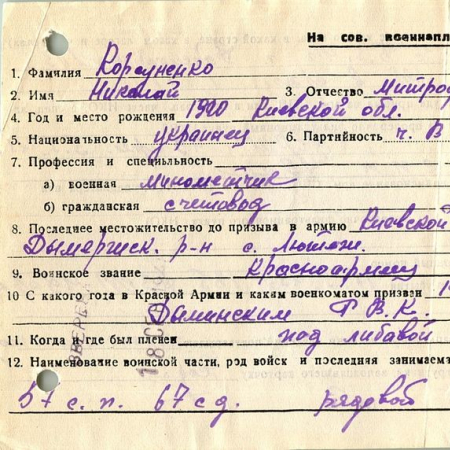 На сов. военнопл
1. Фамилия Корсуненко
2. Имя Николай 3. Отчество Митроф
4. Год и место рождения 1920 Киевской обл.
5. Национальность украинец 6. Партийность ч. В
7. Профессия и специльность
а) военная минометчик
б) гражданская счетовод
8. Последнее местожительство до призыва в армию Киевской
Дымерск. р-н с. Лютеж.
9. Воинское звание красноармеец
10 С какого года в Красной Армии и каким военкоматом призван 19
Р. В. К.
11. Когда и где был пленен под либавой
12. Наименование воинской части, род войск и последняя занимаем
57 с. п. 67 сд. рядовой